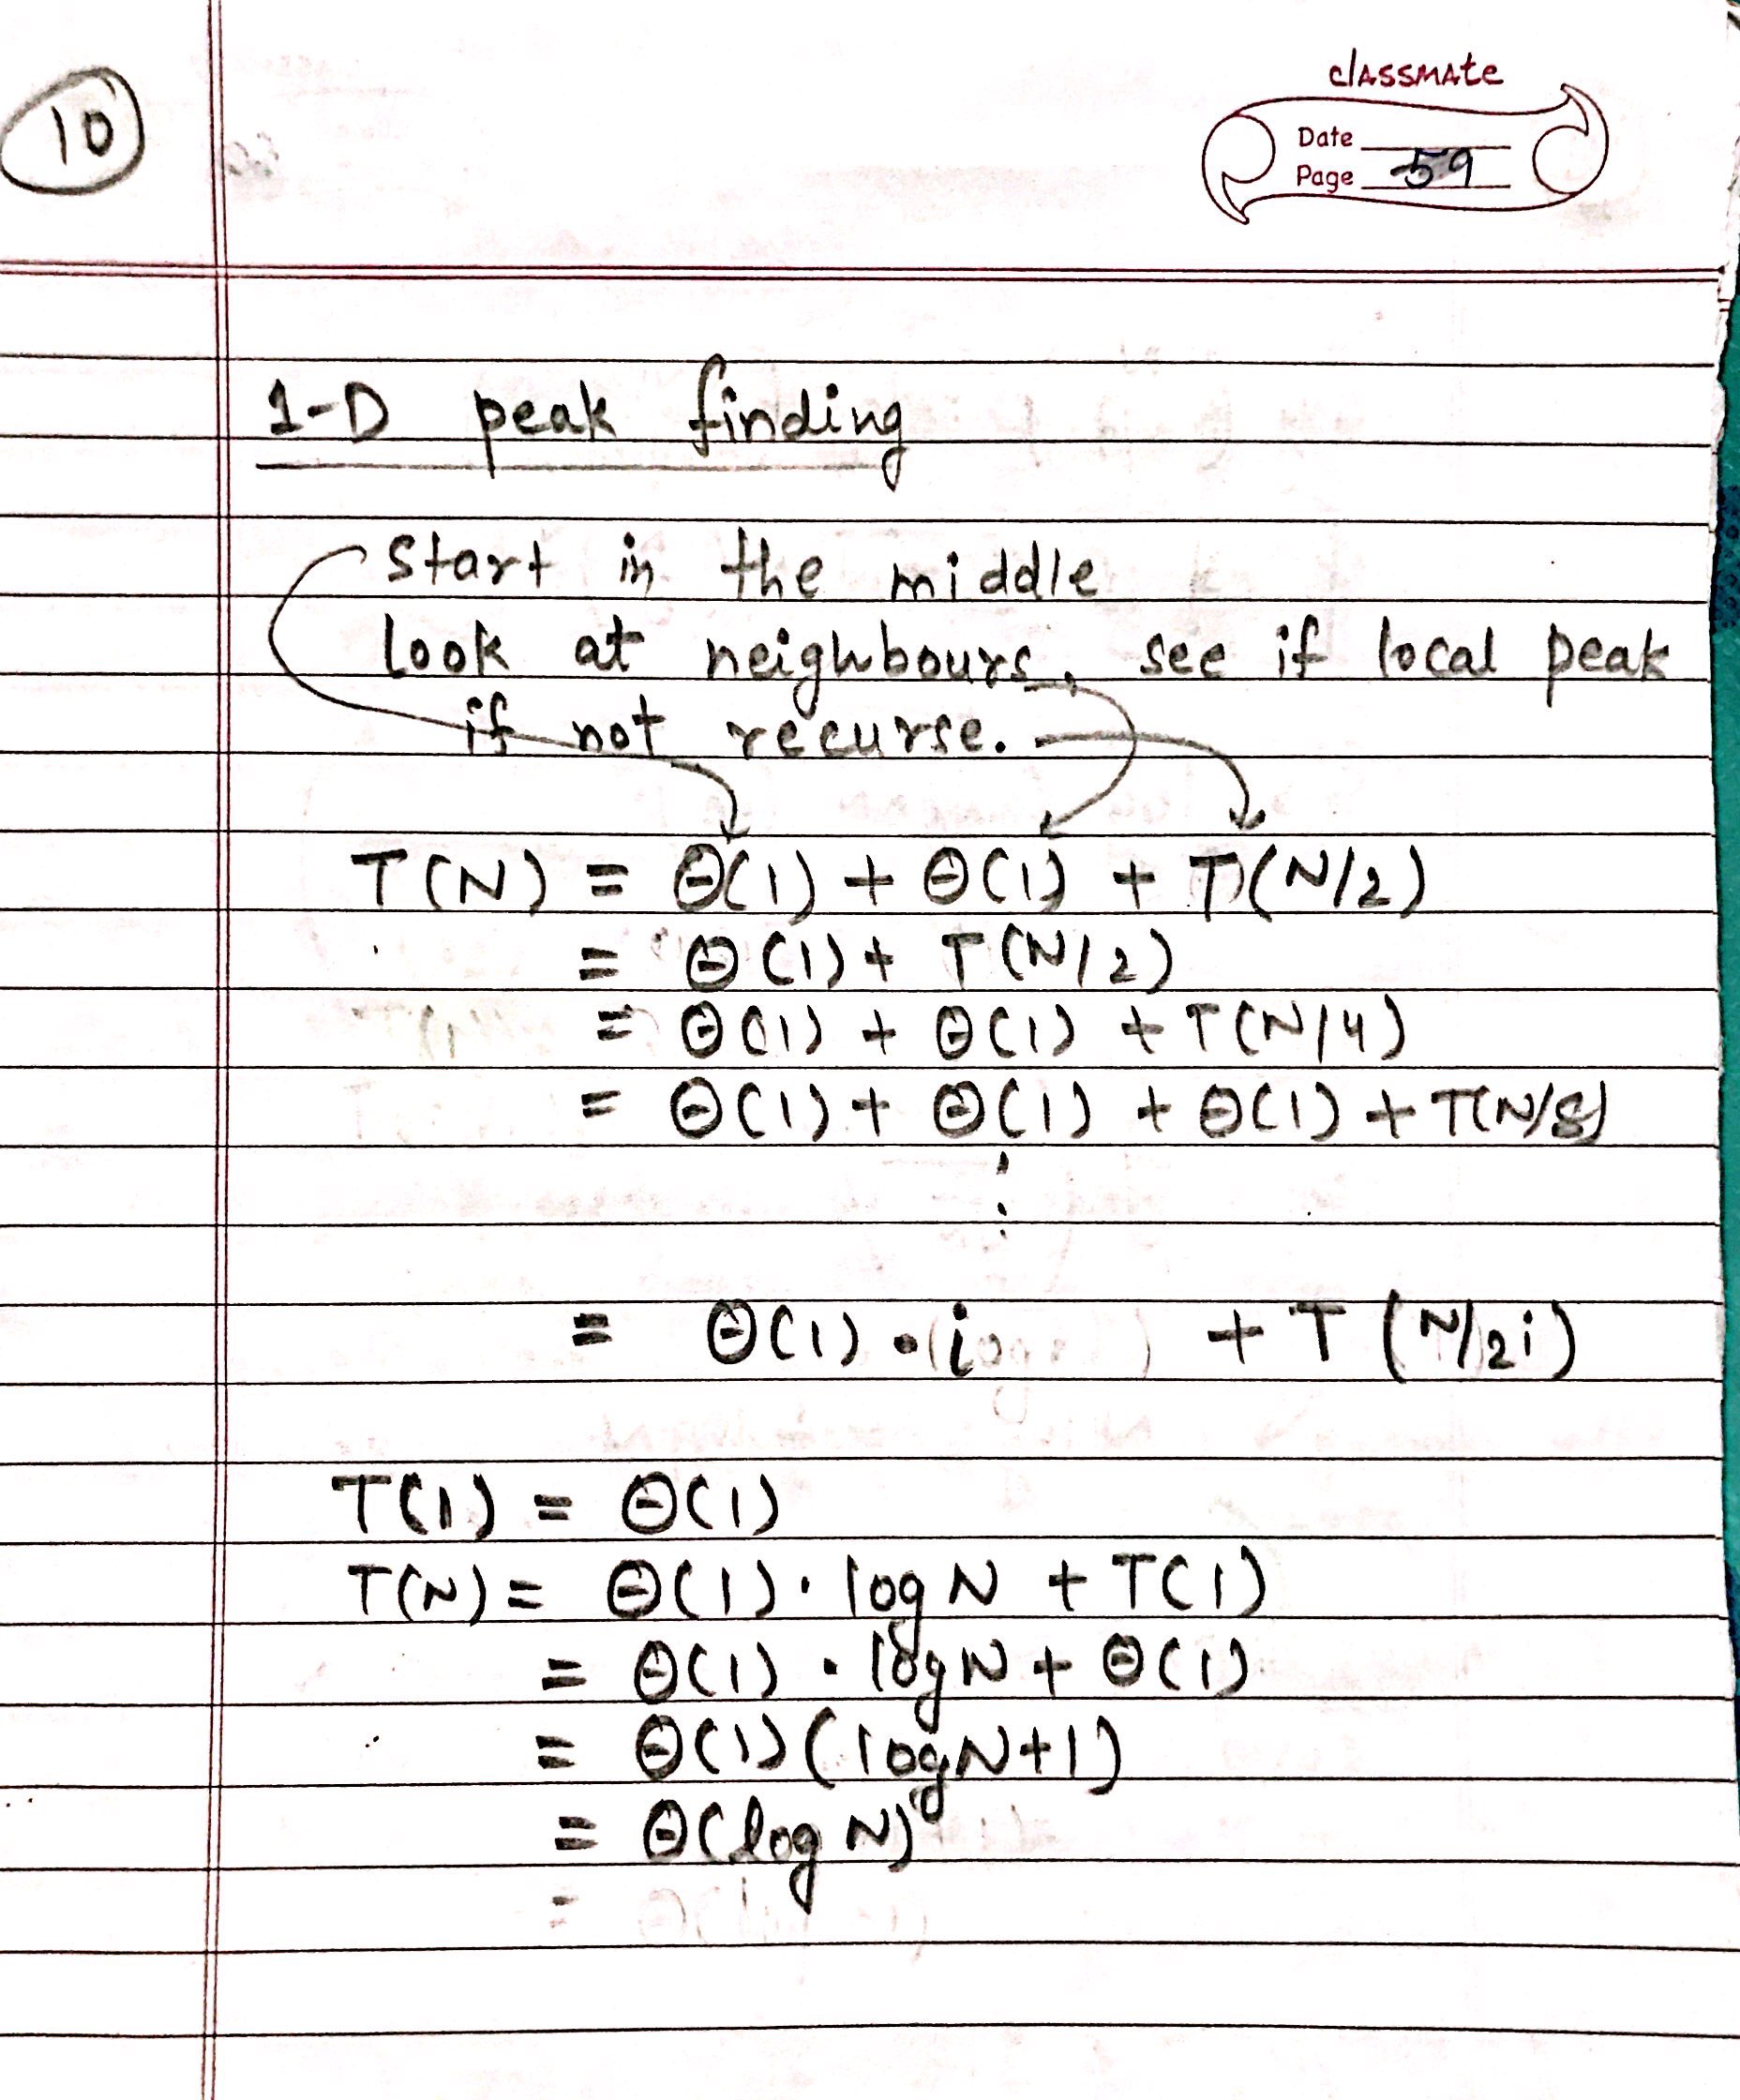 10
classmate
Date
Page 59
1-D peak finding
Start in the middle
look at neighbours, see if local peak
if not recurse.
T(N) = Θ(1) + Θ(1) + T(N/2)
= Θ(1) + T(N/2)
= Θ(1) + Θ(1) + T(N/4)
= Θ(1) + Θ(1) + Θ(1) + T(N/8)
⋮
= Θ(1) • i + T (N/2i)
T(1) = Θ(1)
T(N) = Θ(1) · log N + T(1)
= Θ(1) · log N + Θ(1)
= Θ(1) (log N + 1)
= Θ(log N)
=